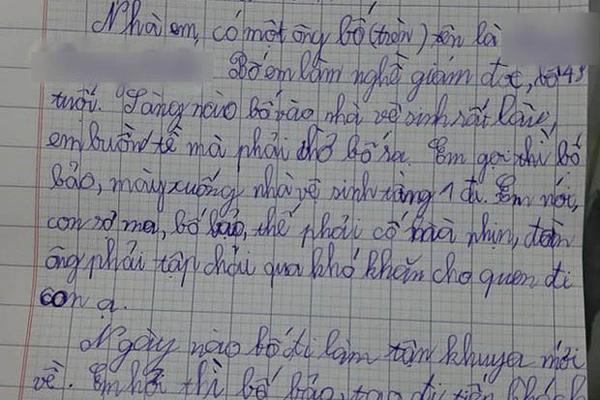 Nhà em, có một ông bố (trên) tên là
Bố em làm nghề giám đốc, bố 43
tuổi. Sáng nào bố vào nhà vệ sinh rất lâu,
em buồn tè mà phải chờ bố ra. Em gọi thì bố
bảo, mày xuống nhà vệ sinh tầng 1 đi. Em nói,
con sợ ma, bố bảo, thế phải cố mà nhịn, đàn
ông phải tập trải qua khó khăn cho quen đi
con ạ.
Ngày nào bố đi làm tận khuya mới
về. Em hỏi thì bố bảo, tao đi tiếp khách